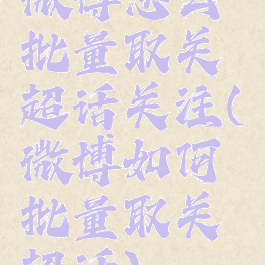 微博怎么
批量取关
超话关注(
微博如何
批量取关
超话)